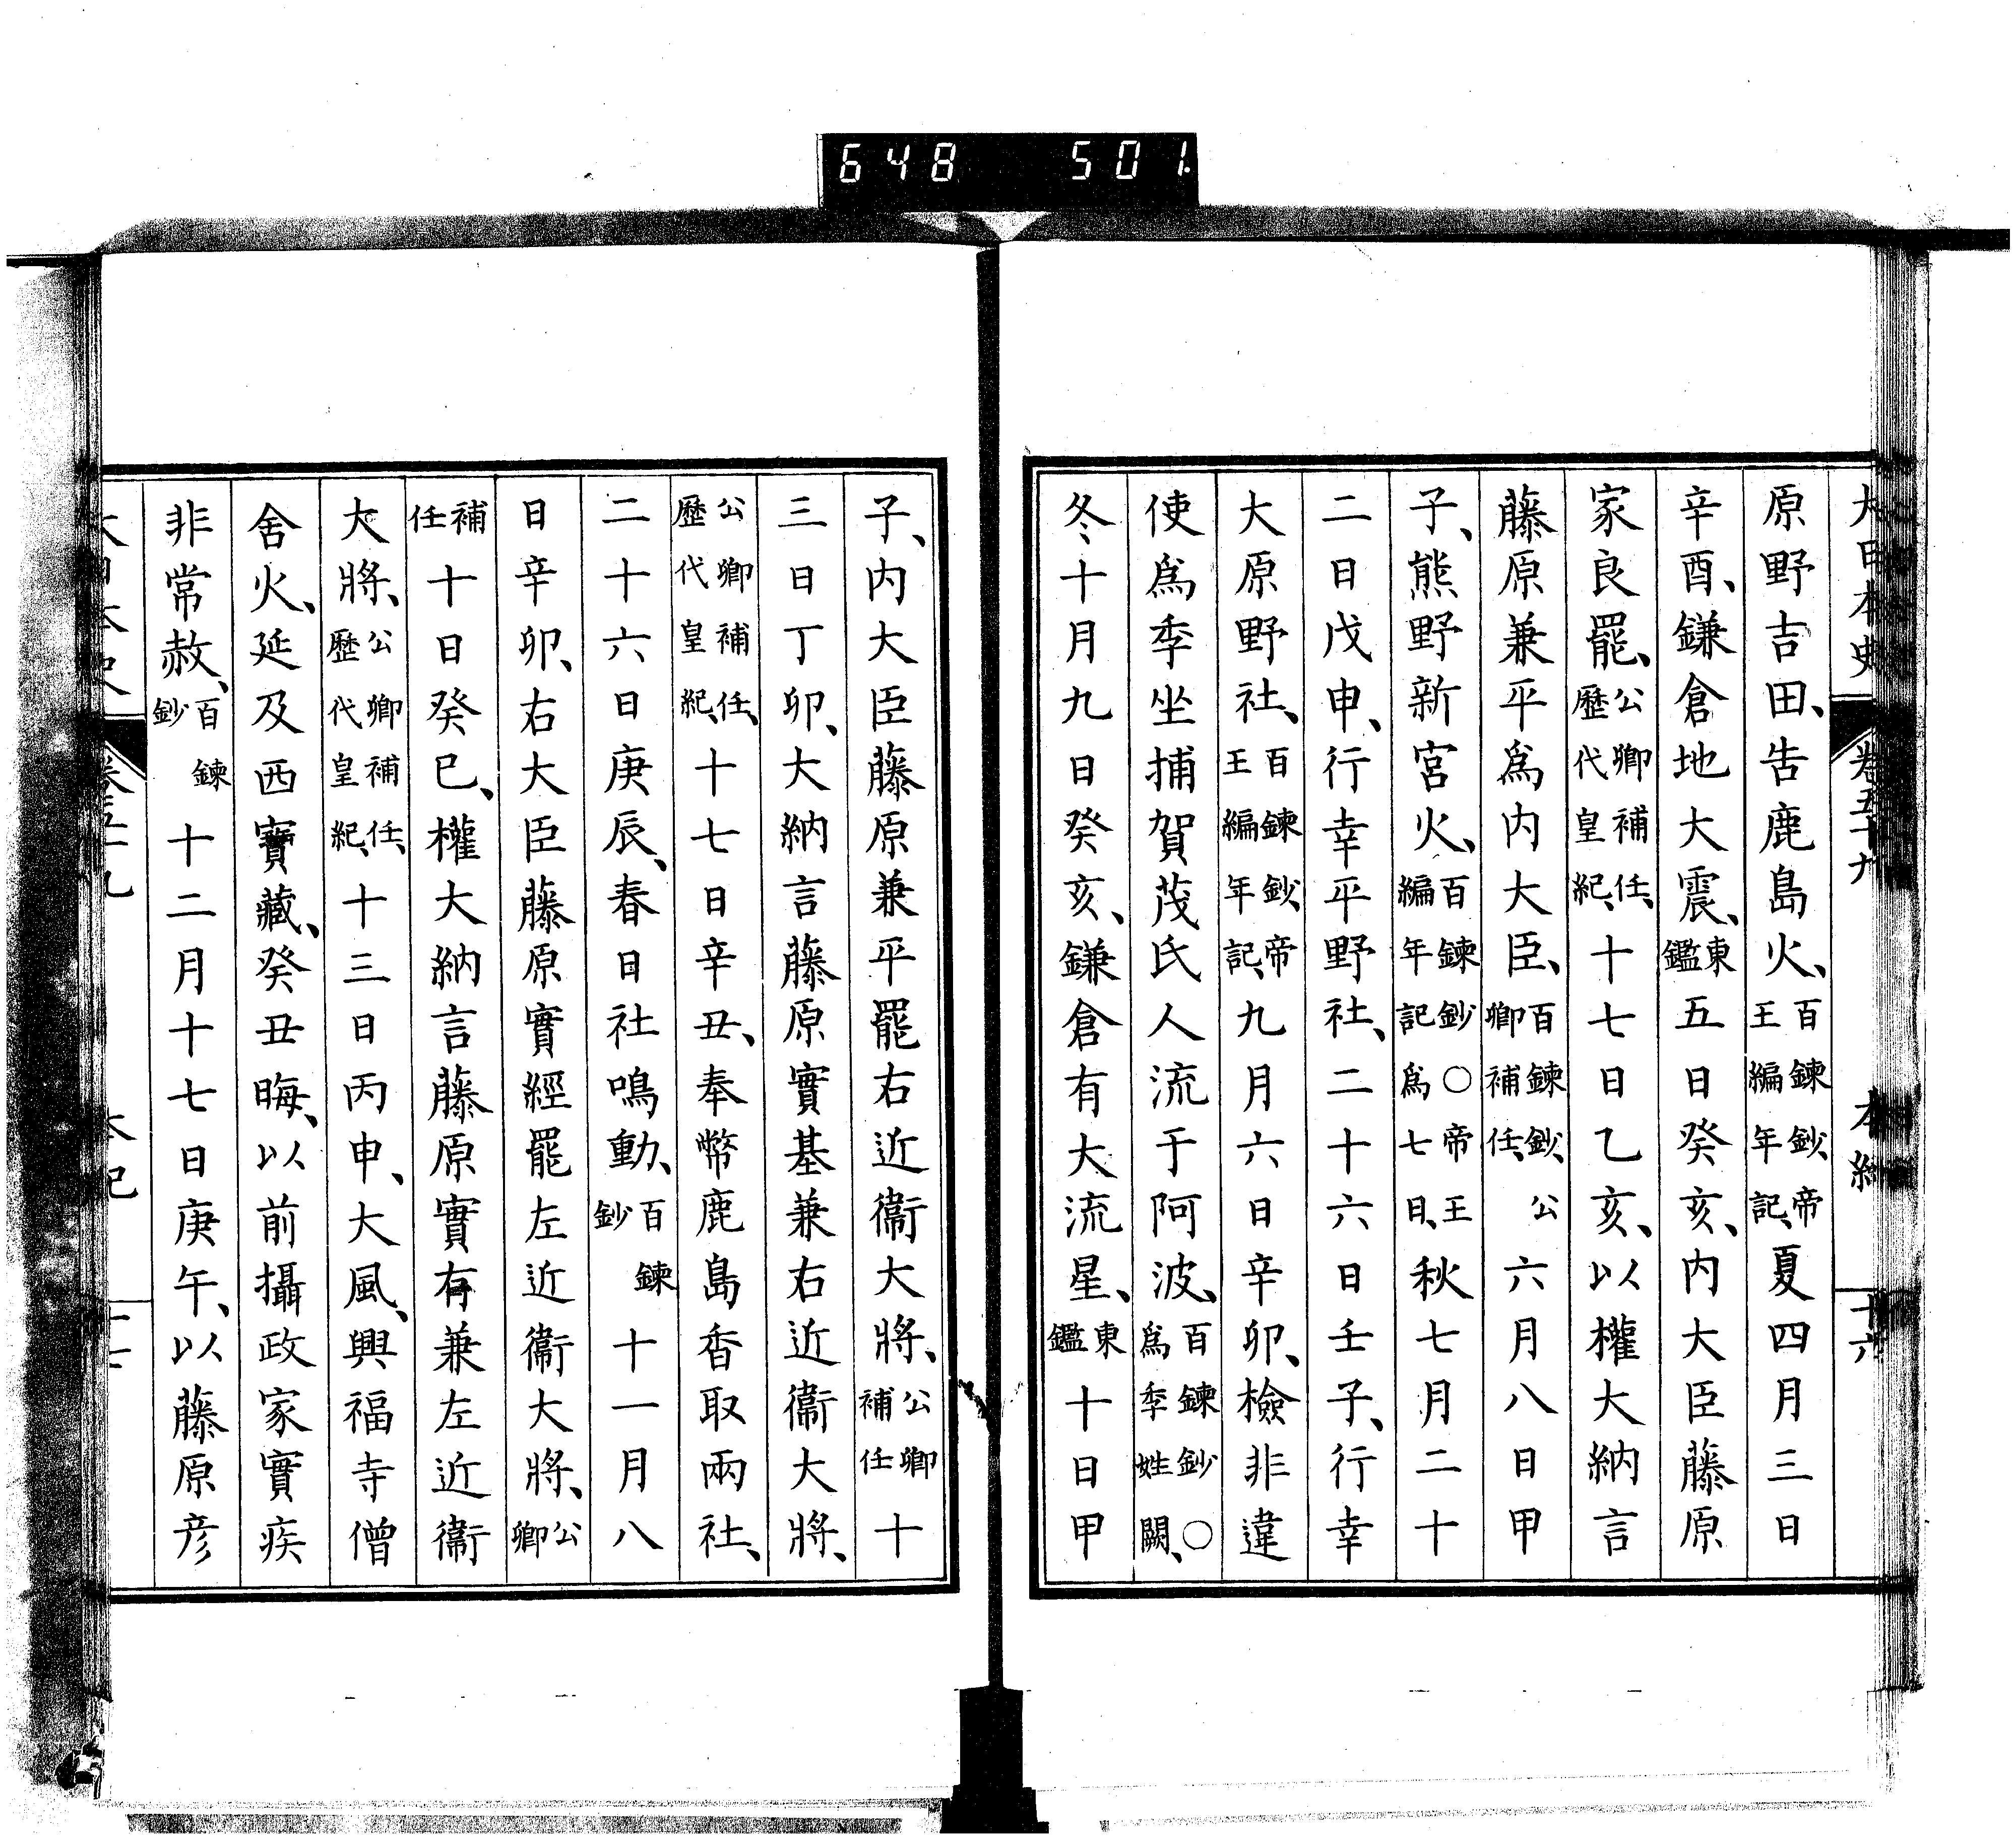 648 501
大日本史 卷五十九 本紀 十六
原野吉田、告鹿島火、百鍊鈔、帝王編年記、夏四月三日
辛酉、鎌倉地大震、東鑑五日癸亥、內大臣藤原
家良罷、公卿補任、歷代皇紀、十七日乙亥、以權大納言
藤原兼平爲內大臣、百鍊鈔、公卿補任、六月八日甲
子、熊野新宮火、百鍊鈔○帝王編年記爲七日、秋七月二十
二日戊申、行幸平野社、二十六日壬子、行幸
大原野社、百鍊鈔、帝王編年記、九月六日辛卯、檢非違
使爲季坐捕賀茂氏人流于阿波、百鍊鈔○爲季姓闕、
冬十月九日癸亥、鎌倉有大流星、東鑑十日甲
子、內大臣藤原兼平罷右近衞大將、公卿補任十
三日丁卯、大納言藤原實基兼右近衞大將、
公卿補任、歷代皇紀、十七日辛丑、奉幣鹿島香取兩社、
二十六日庚辰、春日社鳴動、百鍊鈔十一月八
日辛卯、右大臣藤原實經罷左近衞大將、公卿
補任十日癸巳、權大納言藤原實有兼左近衞
大將、公卿補任、歷代皇紀、十三日丙申、大風、興福寺僧
舍火、延及西寶藏、癸丑晦、以前攝政家實疾
非常赦、百鍊鈔十二月十七日庚午、以藤原彦
大日本史 卷五十九 本紀